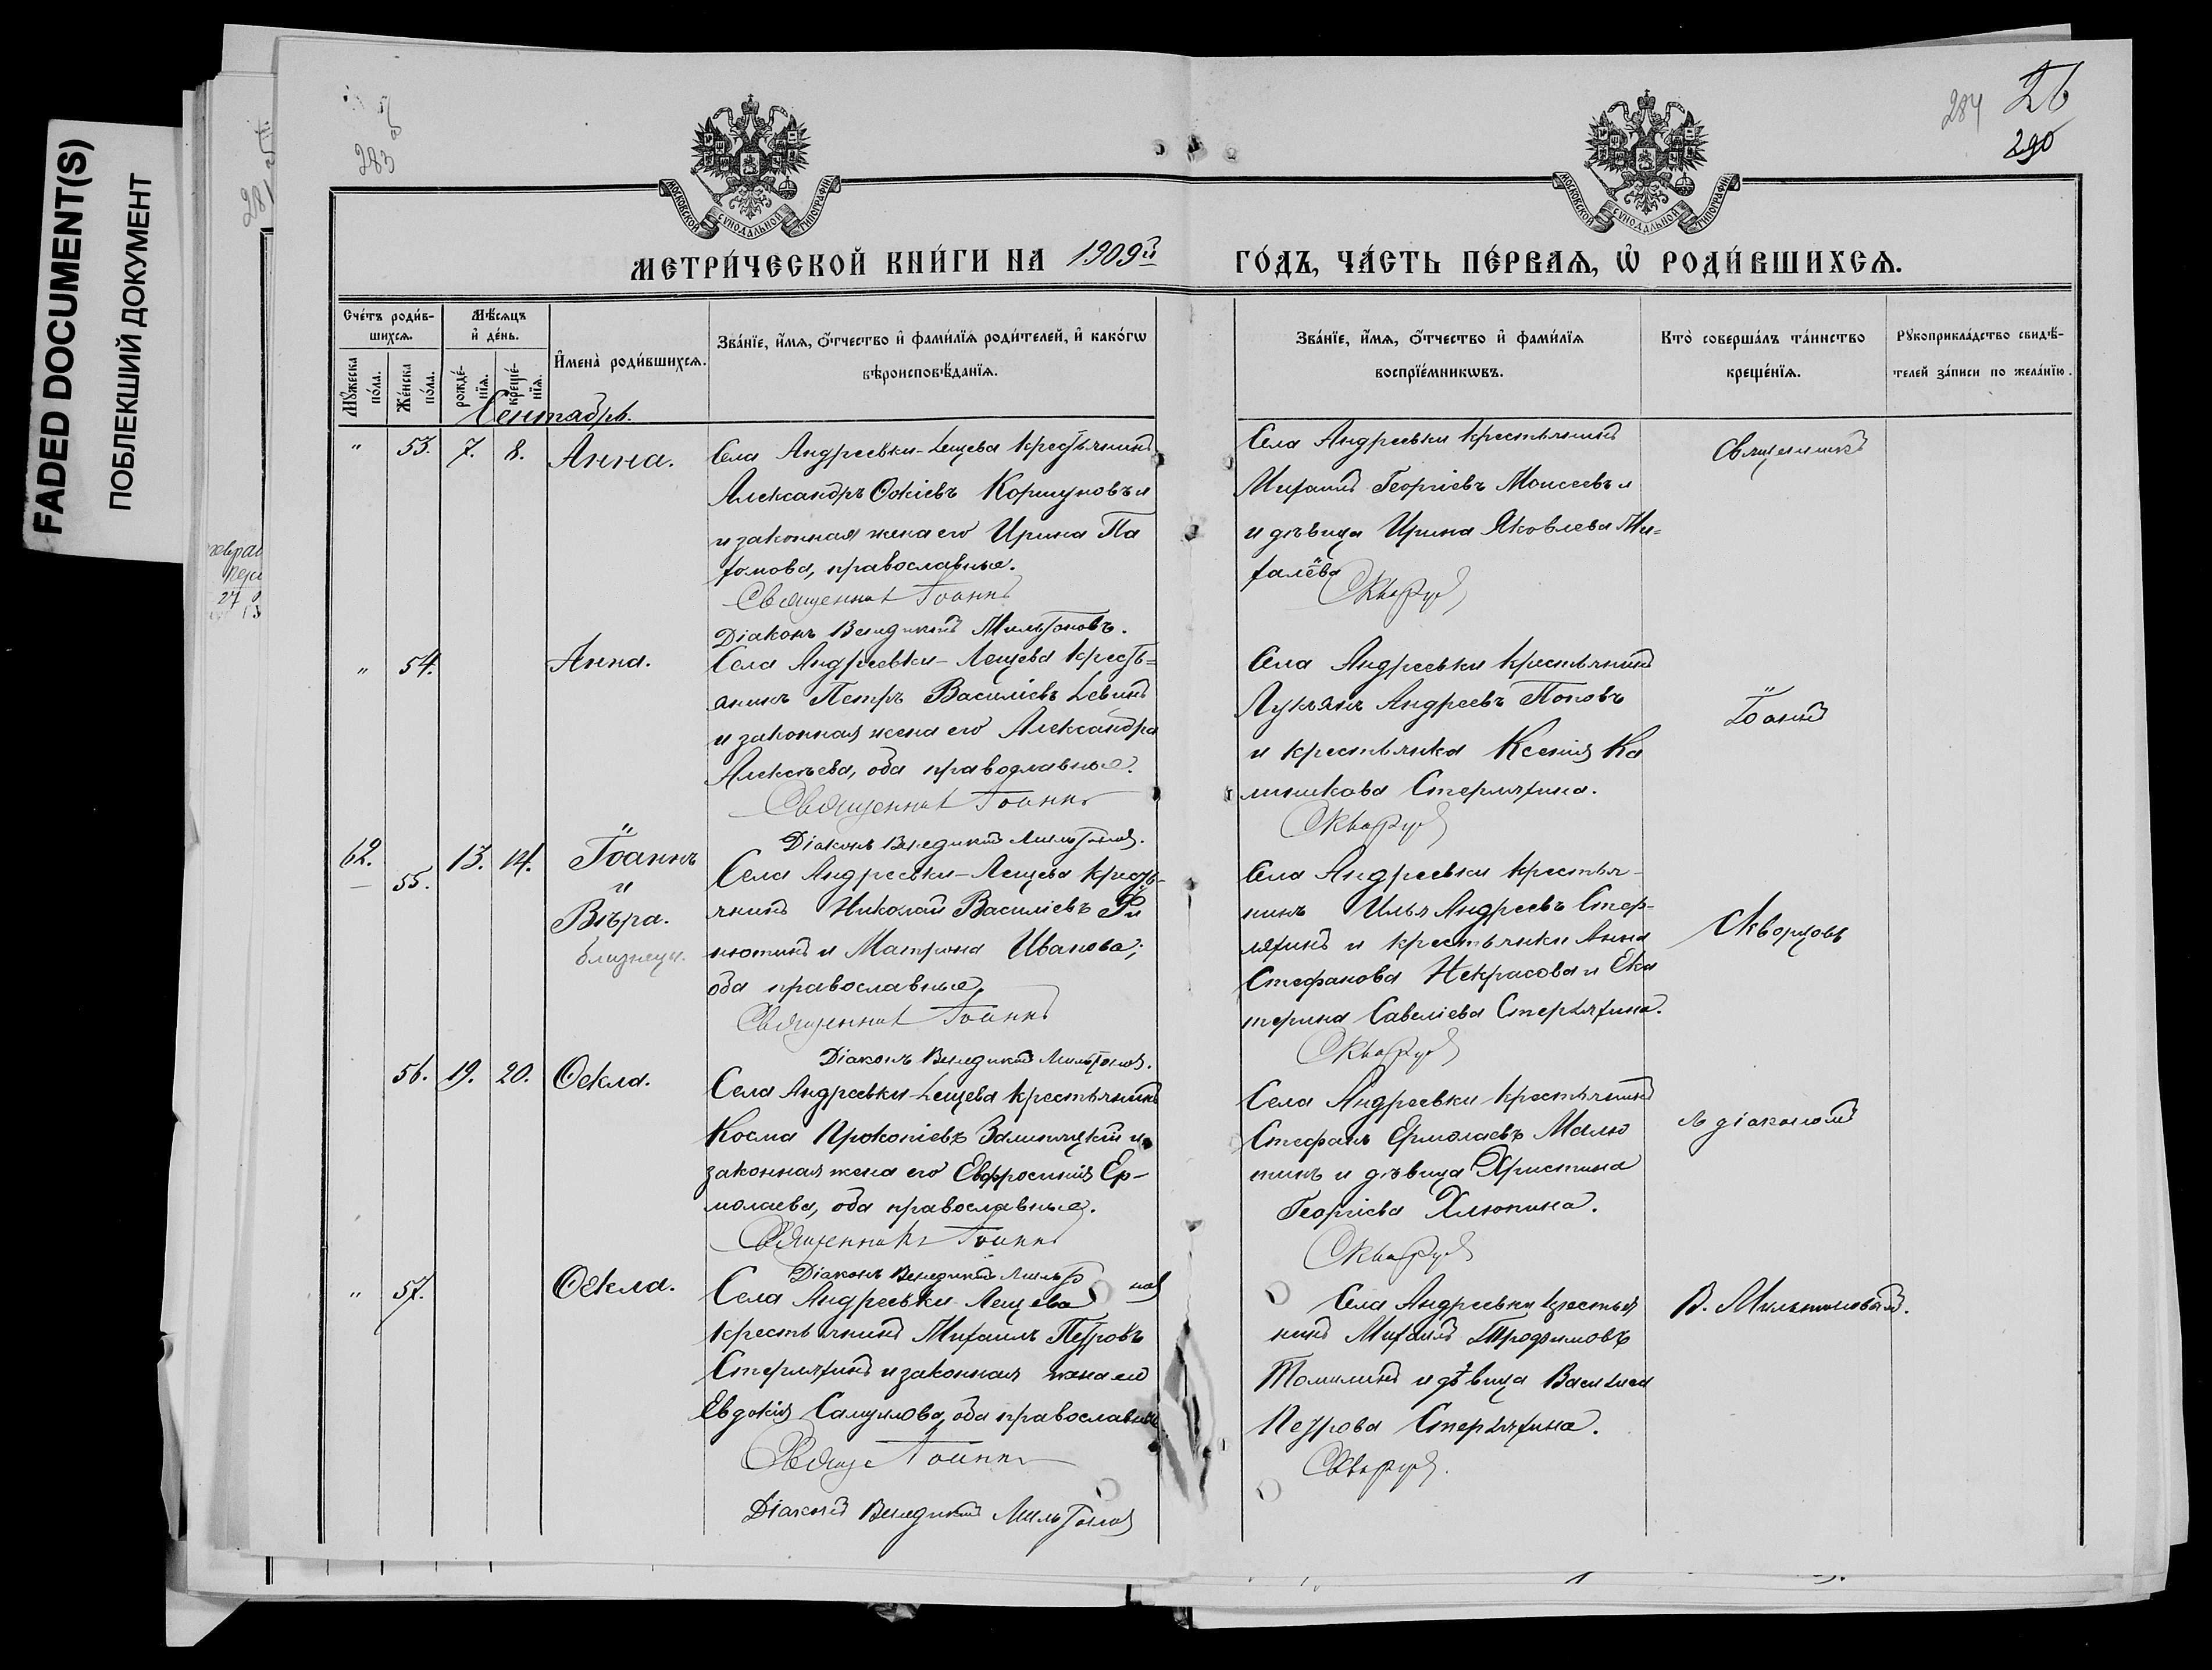 FADED DOCUMENT(S)
ПОБЛЕКШИЙ ДОКУМЕНТ
283
284
26
290
281
МОСКОВСКОЙ СѴНОДАЛЬНОЙ ТИПОГРАФІИ
МОСКОВСКОЙ СѴНОДАЛЬНОЙ ТИПОГРАФІИ
МЕТРИ́ЧЕСКОЙ КНИ́ГИ НА 1909й ГО́ДЪ, ЧА́СТЬ ПЕ́РВАѦ, Ѡ҆ РОДИ́ВШИХСѦ.
Сче́тъ роди́в-
шихсѧ.
Мꙋ́жеска по́ла.
Же́нска по́ла.
Мѣ́сѧцъ
и҆ де́нь.
рожде́-нїѧ.
креще́-нїѧ.
И҆мена̀ роди́вшихсѧ.
Зва́нїе, и҆́мѧ, ѻ҆́тчество и҆ фами́лїѧ роди́телей, и҆ како́гѡ
вѣроисповѣ́данїѧ.
Зва́нїе, и҆́мѧ, ѻ҆́тчество и҆ фами́лїѧ
воспрїе́мникѡвъ.
Кто̀ соверша́лъ та́инство
креще́нїѧ.
Рꙋкоприкла́дство свидѣ́-
телей за́писи по жела́нїю.
Сентябрь.
" 53. 7. 8. Анна.
Села Андреевки-Лещева крестьянинъ
Александръ Ѳокіевъ Коршуновъ и
и законная жена его Ирина Па
хомова, православные.
Священникъ Іоаннъ
Діаконъ Венедиктъ Мильтоновъ.
Села Андреевки крестьянинъ
Михаилъ Георгіевъ Моисеевъ и
и дѣвица Ирина Яковлева Ми-
халёва
Скворцовъ
Священникъ
" 54. Анна.
Села Андреевки-Лещева кресть-
янинъ Петръ Василіевъ Левинъ
и законная жена его Александра
Алексѣева, оба православные.
Священникъ Іоаннъ
Діаконъ Венедиктъ Мильтоновъ.
Села Андреевки крестьянинъ
Лукьянъ Андреевъ Поповъ
и крестьянка Ксенія Ка
линикова Стерляхина.
Скворцовъ
Іоаннъ
62. 55. 13. 14. Іоаннъ
и
Вѣра.
близнецы.
Села Андреевки-Лещева кресть-
янинъ Николай Василіевъ
нютинъ и Матрона Иванова;
оба православные.
Священникъ Іоаннъ
Діаконъ Венедиктъ Мильтоновъ.
Села Андреевки крестья-
нинъ Илья Андреевъ Стер-
ляхинъ и крестьянки Анна
Стефанова Некрасова и Ека
терина Савеліева Стерляхина.
Скворцовъ
Скворцовъ
56. 19. 20. Ѳекла.
Села Андреевки-Лещева крестьянинъ
Косма Прокопіевъ и
законная жена его Евфросинія Ер-
молаева, оба православные.
Священникъ Іоаннъ
Діаконъ Венедиктъ Мильтоновъ
Села Андреевки крестьянинъ
Стефанъ Ермолаевъ Малю
тинъ и дѣвица Христина
Георгіева Хлюпина.
Скворцовъ
съ діакономъ
" 57. Ѳекла.
Села Андреевки-Лещева
крестьянинъ Михаилъ Петровъ
Стерляхинъ и законная жена его
Евдокія Самуилова, оба православные
Священ Іоаннъ
Діаконъ Венедиктъ Мильтоновъ
Села Андреевки крестья
нинъ Михаилъ Трофимовъ
Томилинъ и дѣвица Василиса
Петрова Стерляхина.
Скворцовъ.
В. Мильтоновымъ.